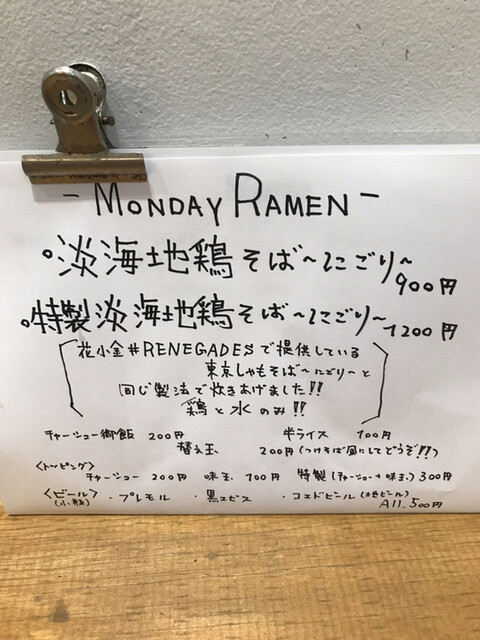 - MONDAY RAMEN -
。淡海地鶏そば〜にごり〜 900円
。特製淡海地鶏そば〜にごり〜 1200円
花小金#RENEGADESで提供している
東京しゃもそば〜にごり〜と
同じ製法で炊きあげました!!
鶏と水のみ!!
チャーシュー御飯 200円 半ライス 100円
替え玉 200円(つけそば風にしてどうぞ!!)
〈トッピング〉
チャーシュー 200円 味玉 100円 特製(チャーシュー+味玉) 300円
〈ビール〉 ・プレモル ・黒エビス ・コエドビール(
(小瓶) All. 500円